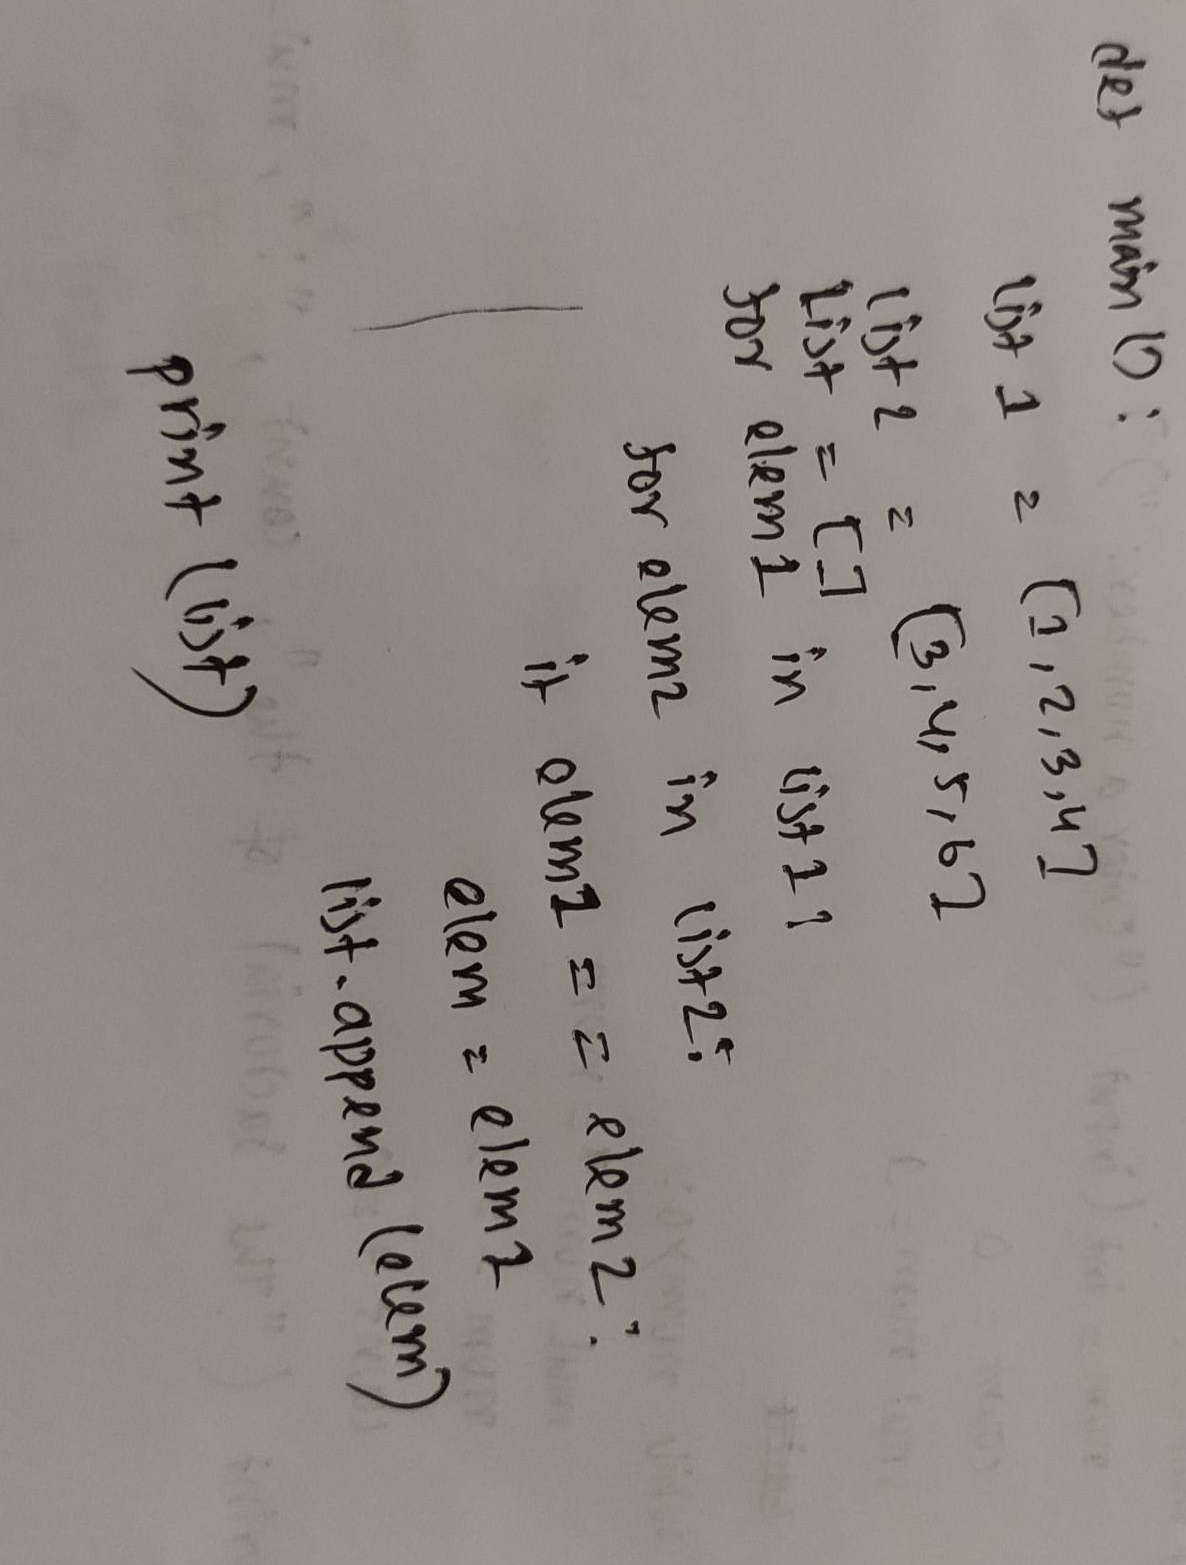 def main():
list 1 = [1,2,3,4]
list 2 = [3,4,5,6]
list = []
for elem1 in list1:
for elem2 in list2:
if elem1 == elem2:
elem = elem1
list.append (elem)
print (list)